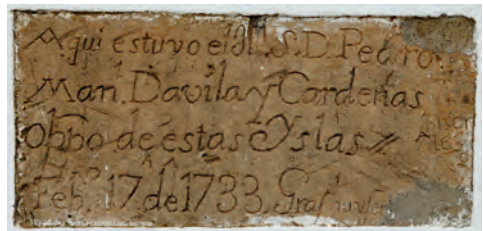 Aqui estuvo el Il. S. D. Pedro
Man. Davila y Cardenas
Obpo de estas Yslas
Feb.º 17. de 1733.